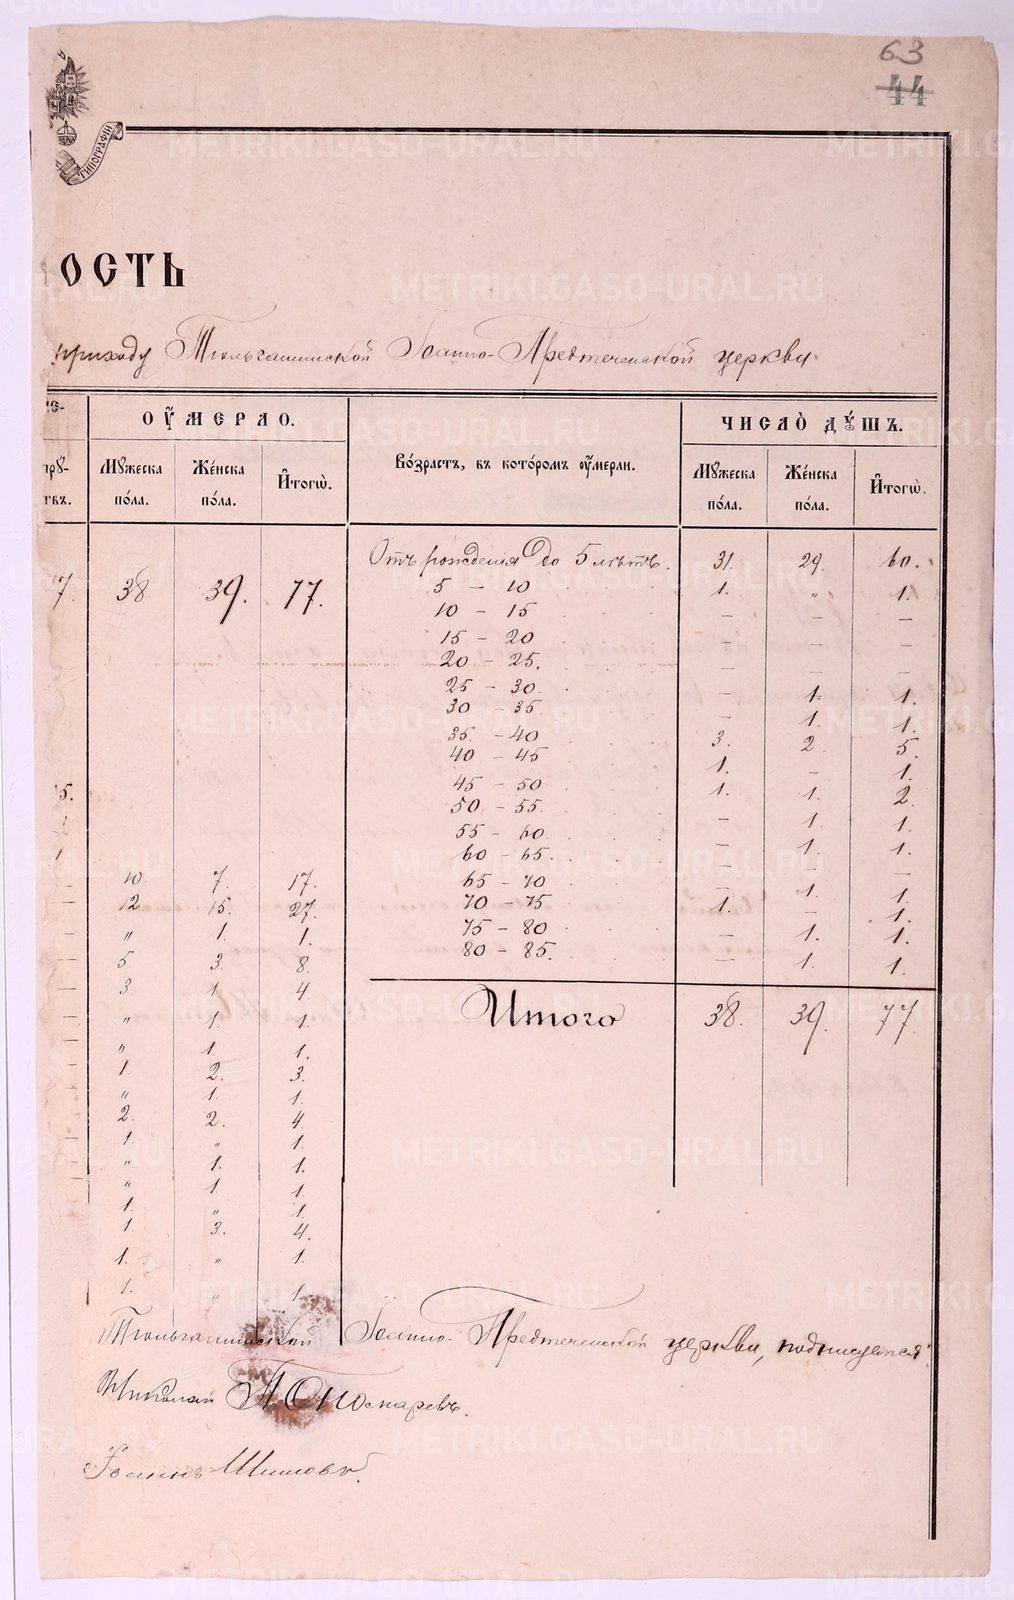 63
44
ТИПОГРАФІИ
ОСТЬ
приходу Тюльгашинской Іоанно-Предтеченской церкви.
ОУМЕРЛО.
ЧИСЛО ДУШЪ.
Мужеска пола.
Женска пола.
Итого.
Возрастъ, въ которомъ оумерли.
Мужеска пола.
Женска пола.
Итого.
38 39. 77.
Отъ рожденія до 5 лѣтъ. 31. 29. 60.
5 – 10 1. „ 1.
10 – 15 – – –
15 – 20 – – –
20 – 25. – – –
25 – 30. – 1. 1.
30 – 35. – 1. 1.
35. – 40 3. 2 5.
40 – 45 1. – 1.
45 – 50 1. 1. 2.
50 – 55. – 1. 1.
55 – 60. – 1. 1.
60 – 65. – – –
65 – 70 – 1. 1.
70 – 75 1. – 1.
75 – 80 – 1. 1.
80 – 85. – 1. 1.
Итого 38. 39. 77.
10. 7. 17.
12 15. 27.
„ 1. 1.
5. 3. 8.
3. 1. 4.
„ 1. 1.
„ 1. 1.
1. 2. 3.
„ 1. 1.
2. 2. 4.
1. „ 1.
„ 1. 1.
„ 1. 1.
1. „ 1.
1. 3. 4.
1. „ 1.
1. „ 1.
Тюльгашинской Іоанно-Предтеченской церкви, подписуемся:
Николай Пономаревъ.
Іоаннъ Шишовъ.
METRIKI.GASO-URAL.RU